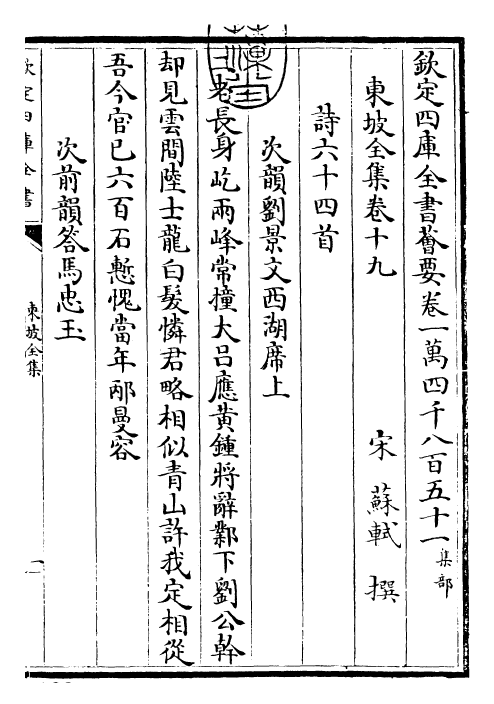 欽定四庫全書薈要卷一萬四千八百五十一 集部
東坡全集卷十九
宋 蘇軾 撰
詩六十四首
次韻劉景文西湖席上
老長身屹兩峰常撞大呂應黃鍾將辭鄴下劉公幹
却見雲間陸士龍白髮憐君略相似青山許我定相從
吾今官已六百石慙愧當年邴曼容
次前韻答馬忠玉
欽定四庫全書
東坡全集